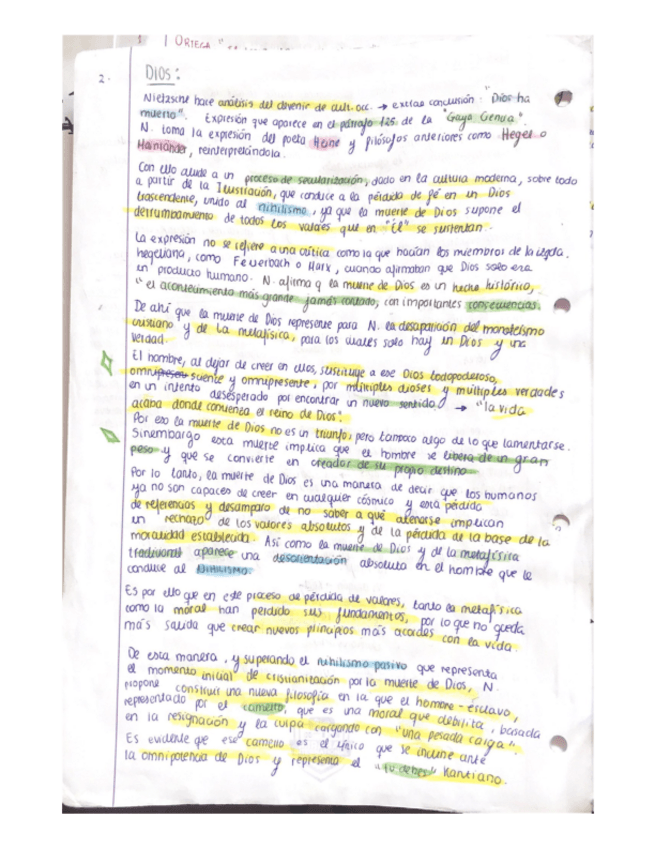 ORTEGA "
2.
DIOS:
Nietzsche hace análisis del devenir de cult. occ. → extrae conclusión: "Dios ha
muerto". Expresión que aparece en el párrafo 125 de la "Gaya Ciencia".
N. toma la expresión del poeta Heine y filósofos anteriores como Hegel o
Mainländer, reinterpretándola.
Con ello alude a un proceso de secularización, dado en la cultura moderna, sobre todo
a partir de la Ilustración, que conduce a la pérdida de fé en un Dios
trascendente, unido al nihilismo, ya que la muerte de Dios supone el
derrumbamiento de todos los valores que en "Él" se sustentan.
La expresión no se refiere a una crítica como la que hacían los miembros de la izqda.
hegeliana, como Feuerbach o Marx, cuando afirmaban que Dios solo era
un producto humano. N. afirma q la muerte de Dios es un hecho histórico,
"el acontecimiento más grande jamás contado, con importantes consecuencias.
De ahí que la muerte de Dios represente para N. la desaparición del monoteísmo
cristiano y de la metafísica, para los cuales solo hay un Dios y una
verdad.
El hombre, al dejar de creer en ellos, sustituye a ese Dios todopoderoso,
omnipresente y omnipresente, por múltiples dioses y múltiples verdades
en un intento desesperado por encontrar un nuevo sentido. → "la vida
acaba donde comienza el reino de Dios".
Por eso la muerte de Dios no es un triunfo, pero tampoco algo de lo que lamentarse.
Sinembargo esta muerte implica que el hombre se libera de un gran
peso y que se convierte en creador de su propio destino
Por lo tanto, la muerte de Dios es una manera de decir que los humanos
ya no son capaces de creer en cualquier cósmico y esta pérdida
de referencias y desamparo de no saber a qué atenerse implican
un rechazo de los valores absolutos y de la pérdida de la base de la
moralidad establecida. Así como la muerte de Dios y de la metafísica
tradicional aparece una desorientación absoluta en el hombre que le
conduce al NIHILISMO.
Es por ello que en este proceso de pérdida de valores, tanto la metafísica
como la moral han perdido sus fundamentos, por lo que no queda
más salida que crear nuevos principios más acordes con la vida.
De esta manera, y superando el nihilismo pasivo que representa
el momento inicial de cristianización por la muerte de Dios, N.
propone construir una nueva filosofía en la que el hombre-esclavo,
representado por el camello, que es una moral que debilita, basada
en la resignación y la culpa cargando con "una pesada carga".
Es evidente que ese camello es el único que se incline ante
la omnipotencia de Dios y representa el "tú debes" Kantiano.